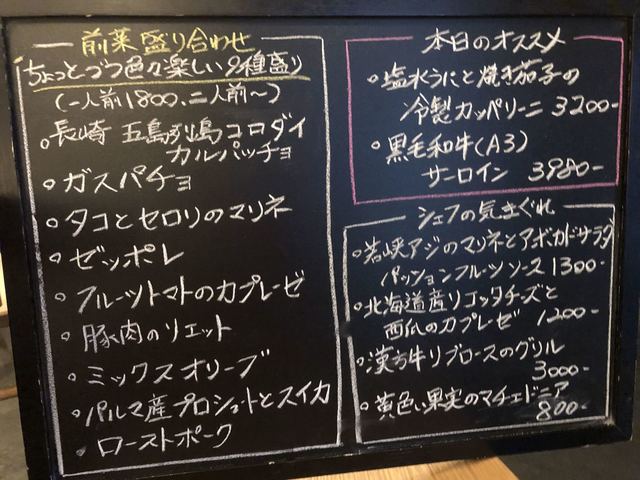 前菜盛り合わせ
ちょっとづつ色々楽しい9種盛り
(一人前1800.二人前〜)
◦長崎 五島列島コロダイ
カルパッチョ
◦ガスパチョ
◦タコとセロリのマリネ
◦ゼッポレ
◦フルーツトマトのカプレーゼ
◦豚肉のリエット
◦ミックスオリーブ
◦パルマ産プロシュートとスイカ
◦ローストポーク
本日のオススメ
◦塩水うにと焼き茄子の
冷製カッペリーニ 3200-
◦黒毛和牛(A3)
サーロイン 3980-
シェフの気まぐれ
◦若峡アジのマリネとアボカドサラダ
パッションフルーツソース 1300-
◦北海道産リコッタチーズと
西瓜のカプレゼ 1200-
◦漢方牛リブロースのグリル
3000-
◦黄色い果実のマチェドニア
800-